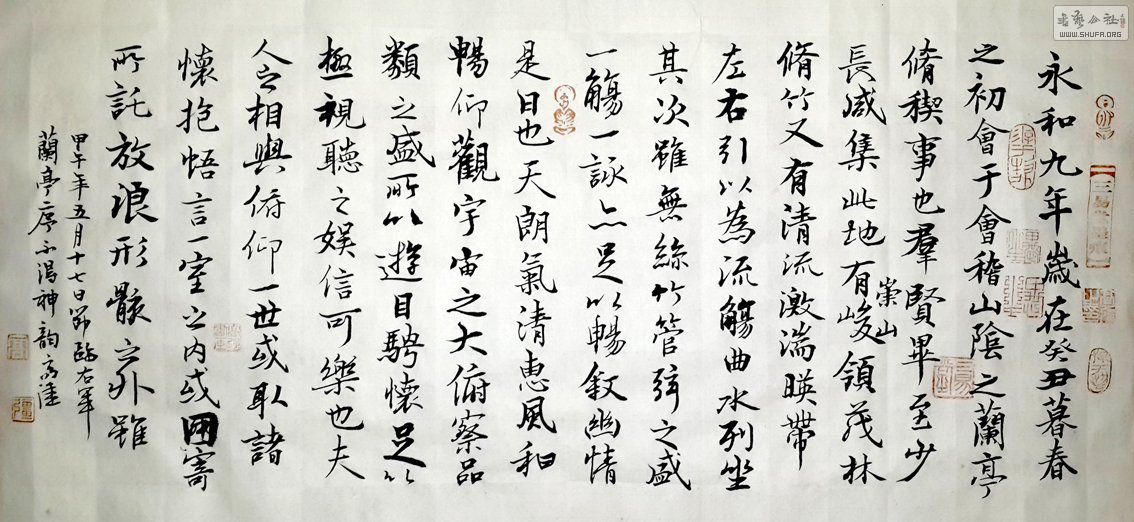 永和九年歲在癸丑暮春
之初會于會稽山陰之蘭亭
脩稧事也羣賢畢至少
長咸集此地有崇山峻領茂林
脩竹又有清流激湍暎帶
左右引以為流觴曲水列坐
其次雖無絲竹管弦之盛
一觴一詠亦足以暢敘幽情
是日也天朗氣清惠風和
暢仰觀宇宙之大俯察品
類之盛所以遊目騁懷足以
極視聽之娛信可樂也夫
人之相與俯仰一世或取諸
懷抱悟言一室之內或因寄
所託放浪形骸之外雖
甲午年五月十七日節臨右軍
蘭亭序
神韵
WWW.SHUFA.ORG